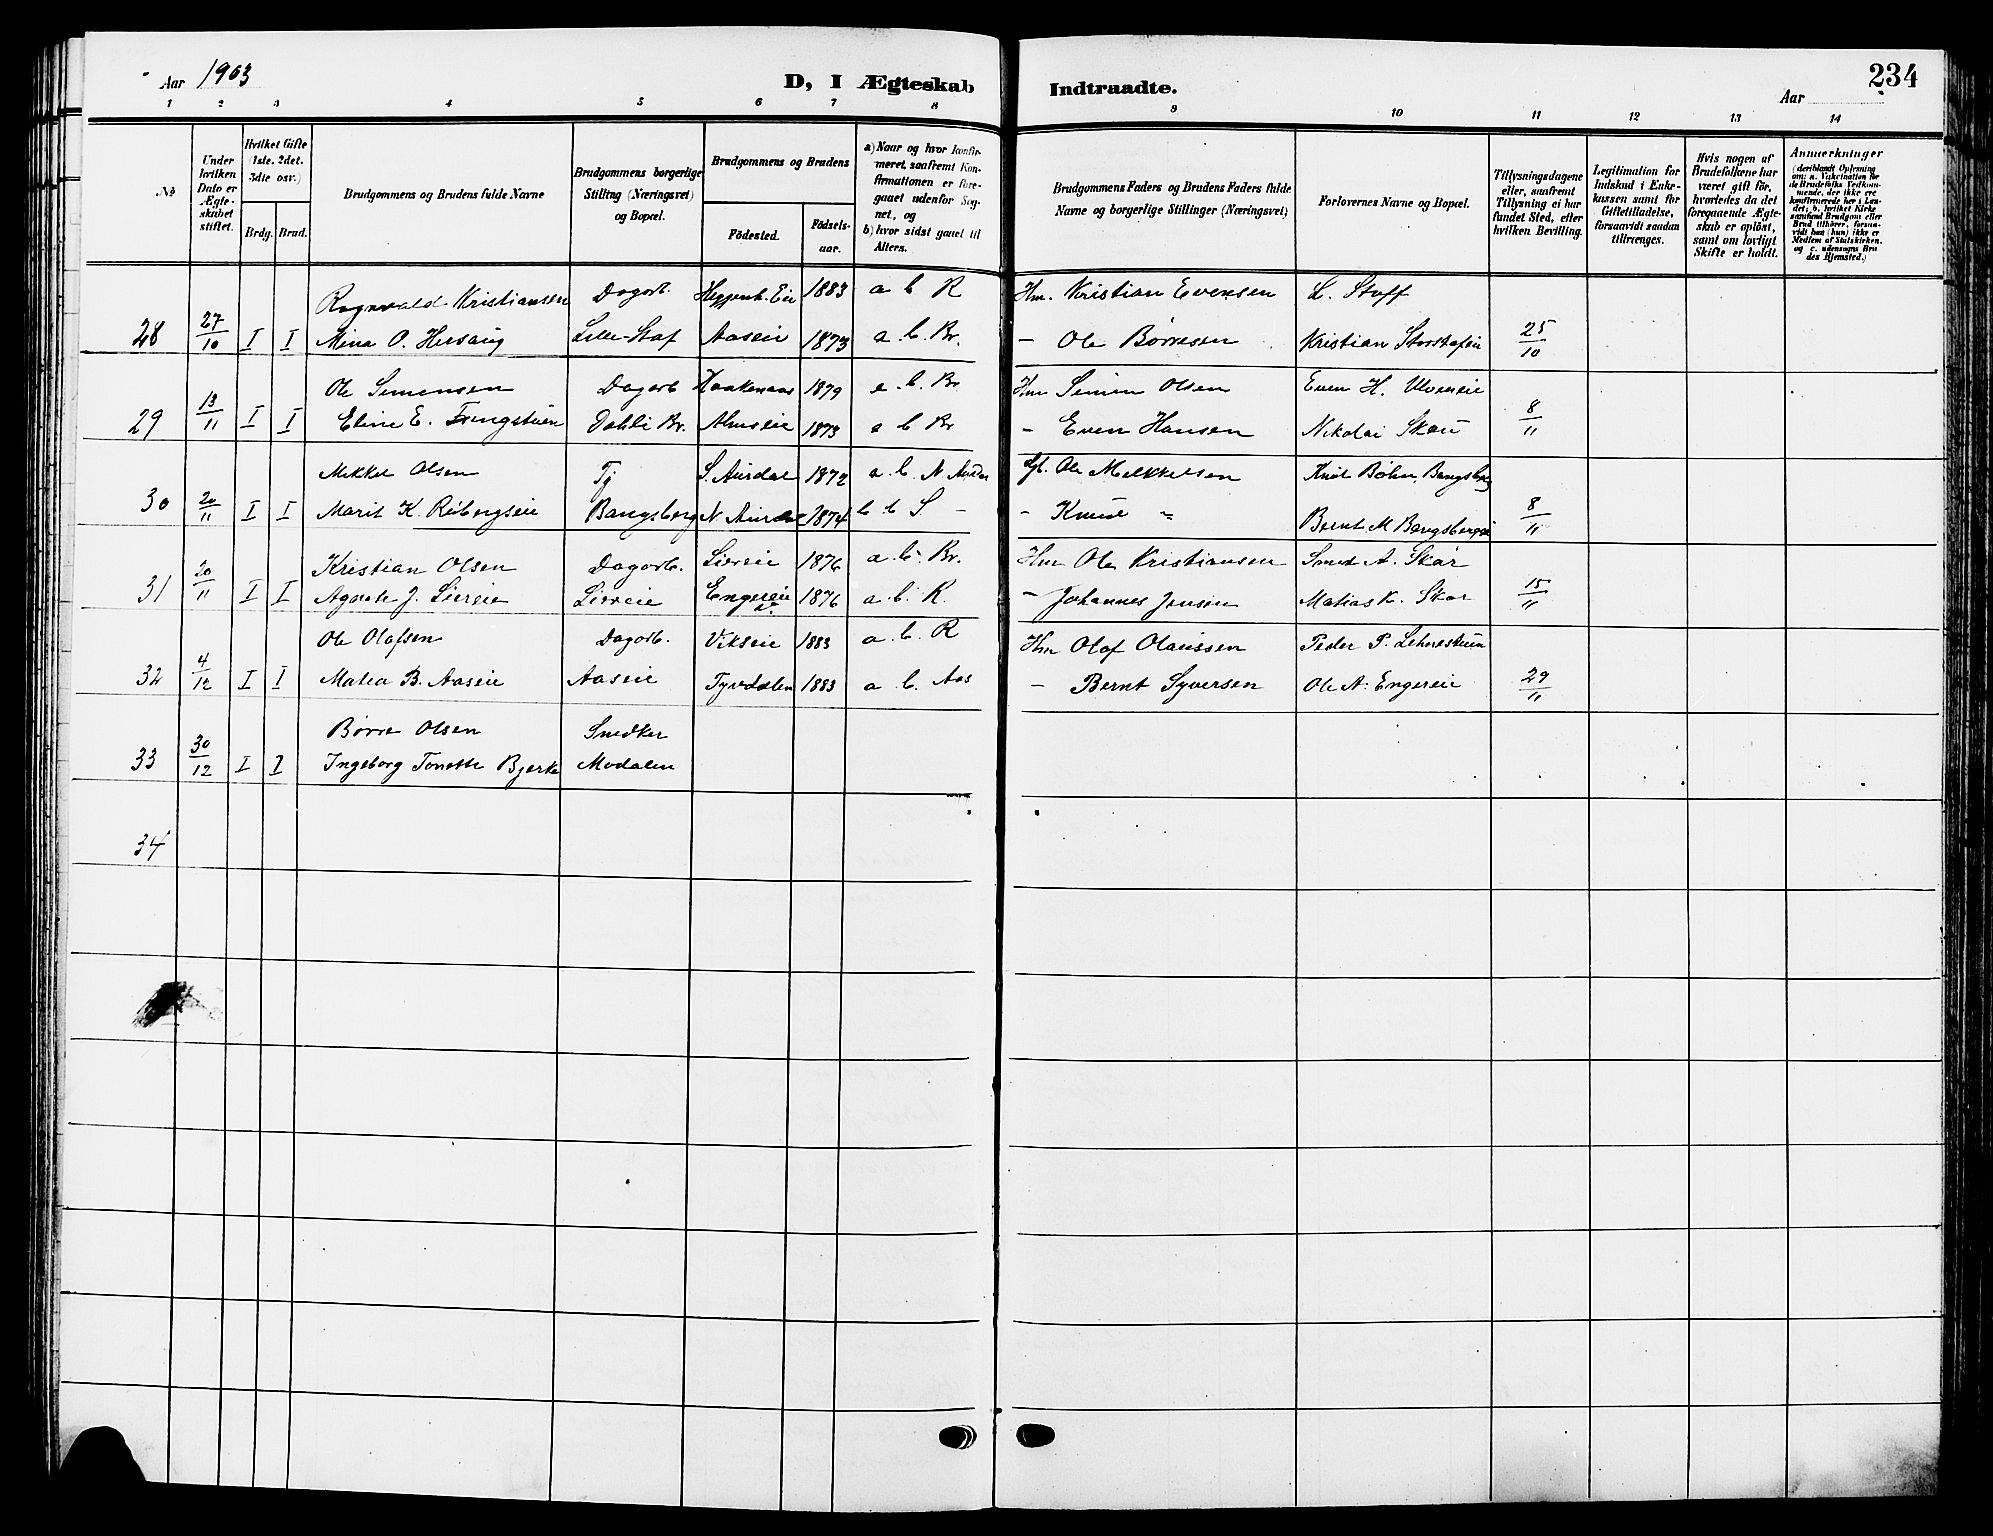 Aar 1903
D, I Ægteskab Indtraadte.
234
Aar
1 2 3 4 5 6 7 8 9 10 11 12 13 14
№
Under hvilken Dato er Ægteskabet stiftet.
Hvilket Gifte (1ste. 2det. 3die osv.)
Brdg. Brud.
Brudgommens og Brudens fulde Navne
Brudgommens borgerlige Stilling (Næringsvei) og Bopæl.
Brudgommens og Brudens
Fødested. Fødselsaar.
a) Naar og hvor konfirmeret, saafremt Konfirmationen er foregaaet udenfor Sognet, og
b) hvor sidst gaaet til Alters.
Brudgommens Faders og Brudens Faders fulde Navne og borgerlige Stillinger (Næringsvei)
Forlovernes Navne og Bopæl.
Tillysningsdagene eller, saafremt Tillysning ei har fundet Sted, efter hvilken Bevilling.
Legitimation for Indskud i Enkekassen samt for Giftetilladelse, forsaavidt saadan tiltrænges.
Hvis nogen af Brudefolkene har været gift før, hvorledes da det foregaaende Ægteskab er opløst, samt om lovligt Skifte er holdt.
Anmerkninger (deriblandt Oplysning om: a. Vakcination for de Brudefolks Vedkommende, der ikke ere konfirmerede her i Landet; b. hvilket Kirkesamfund Brudgom eller Brud tilhører, forsaavidt han (hun) ikke er Medlem af Statskirken, og c. udensogns Brudes Hjemsted.)
Ragnvald Kristiansen Dagarb. Heggenh. Eie 1883 a b R Hm. Kristian Evensen L. Staff
28 27/10 I I Mina O. Hersaug Lille-Staf Aaseie 1873 a. b. Br. – Ole Børresen Kristian Storstafeie 25/10
Ole Simensen Dagarb Haakenaas 1879 a. b. Br Hm Simen Olsen Even H. Ulveneie
29 13/11 I I Eline E. Fringstuen Dahli Br. Almseie 1873 a b Br – Even Hansen Nikolai Skau 8/11
Mikkel Olsen Tj S. Aurdal 1872 a. b. N. Aurdal Ole Mikkelsen Knut Bøhn, Bangsberg
30 20/11 I I Marit K. Robergseie Bangsberg N Aurdal 1874 b b S – – Knud " Bernt M Bangsbergeie 8/11
Kristian Olsen Dagarb. Liereie 1876 a. b. Br. Hm Ole Kristiansen Smed A. Skar
31 20/11 I I Agnete J. Liereie Liereie Engereie 1876 a. b. R. – Johannes Jensen Matias K. Skar 15/11
Ole Olafsen Dagarb. Vikseie 1883 a. b. R Hm Olaf Olaussen Peder P. Lehnestuen
32 4/12 I I Matea B. Aaseie Aaseie Tyvdalen 1883 a b. Aas – Bernt Syversen Ole A. Engereie 29/11
Børre Olsen Snedker
33 30/12 I I Ingeborg Tonette Bjerke Modalen
34